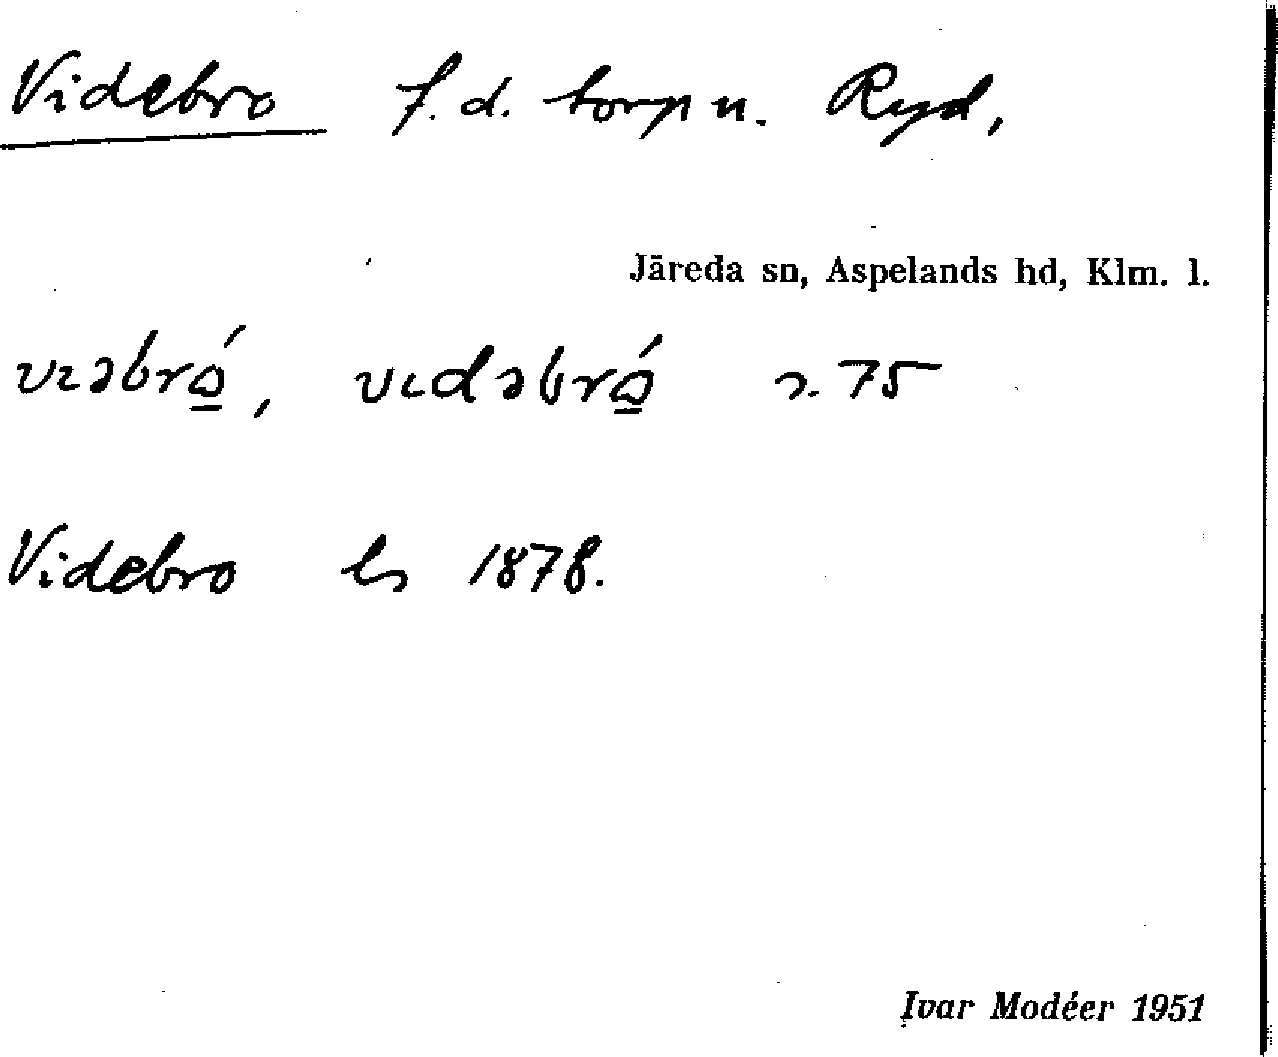 Videbro f.d. torp u. Ryd,
Järeda sn, Aspelands hd, Klm. l.
vɩəbrώ̲, vɩdəbrώ̲ s. 75
Videbro hs 1878.
Ivar Modéer 1951